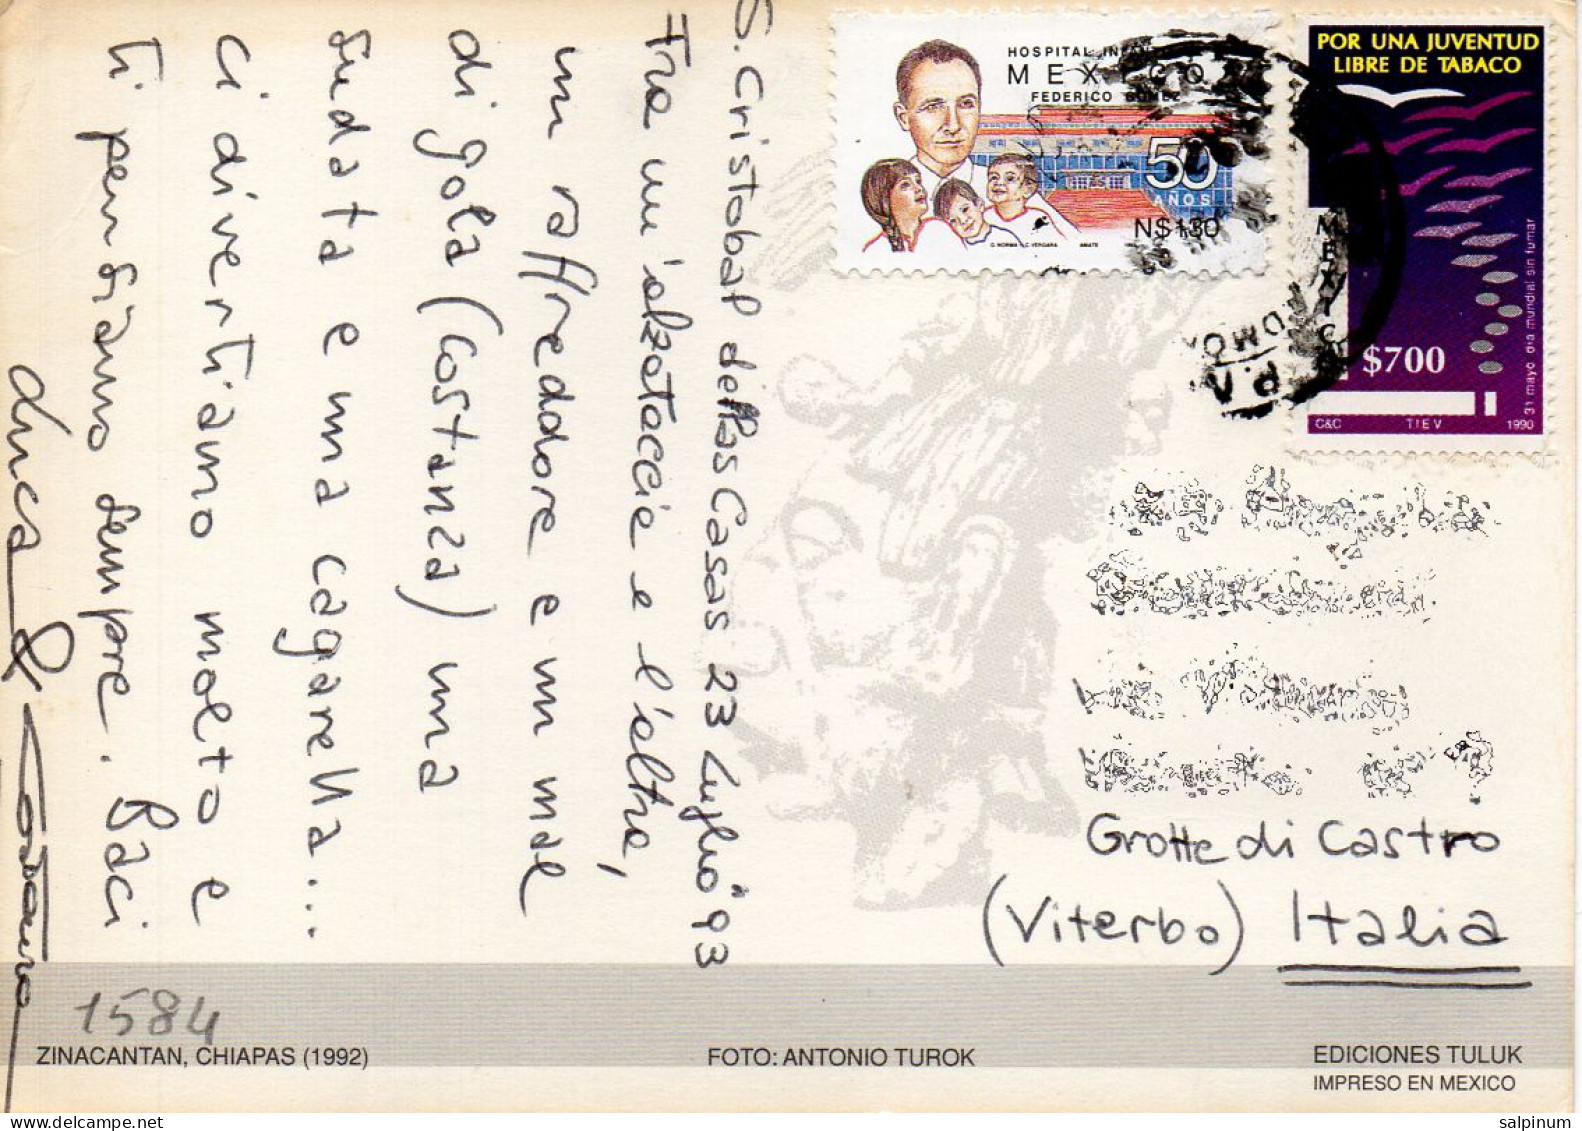 S. Cristobal delas Casas 23 Luglio "93
Tra un'alzataccie e l'altra,
un raffreddore e un mal
di gola (Costanza) una
sudata e una cagarella...
Ci divertiamo molto e
ti pensiamo sempre. Baci
Luca & Costanza
HOSPITAL INFAN
MEXICO
FEDERICO GOMEZ
50
AÑOS
N$1.30
G. NORMA - C. VERGARA
AMATE
POR UNA JUVENTUD
LIBRE DE TABACO
MEXICO
$700
31 mayo día mundial sin fumar
C&C TIEV 1990
Grotte di Castro
(Viterbo) Italia
1584
ZINACANTAN, CHIAPAS (1992)
FOTO: ANTONIO TUROK
EDICIONES TULUK
IMPRESO EN MEXICO
salpinum